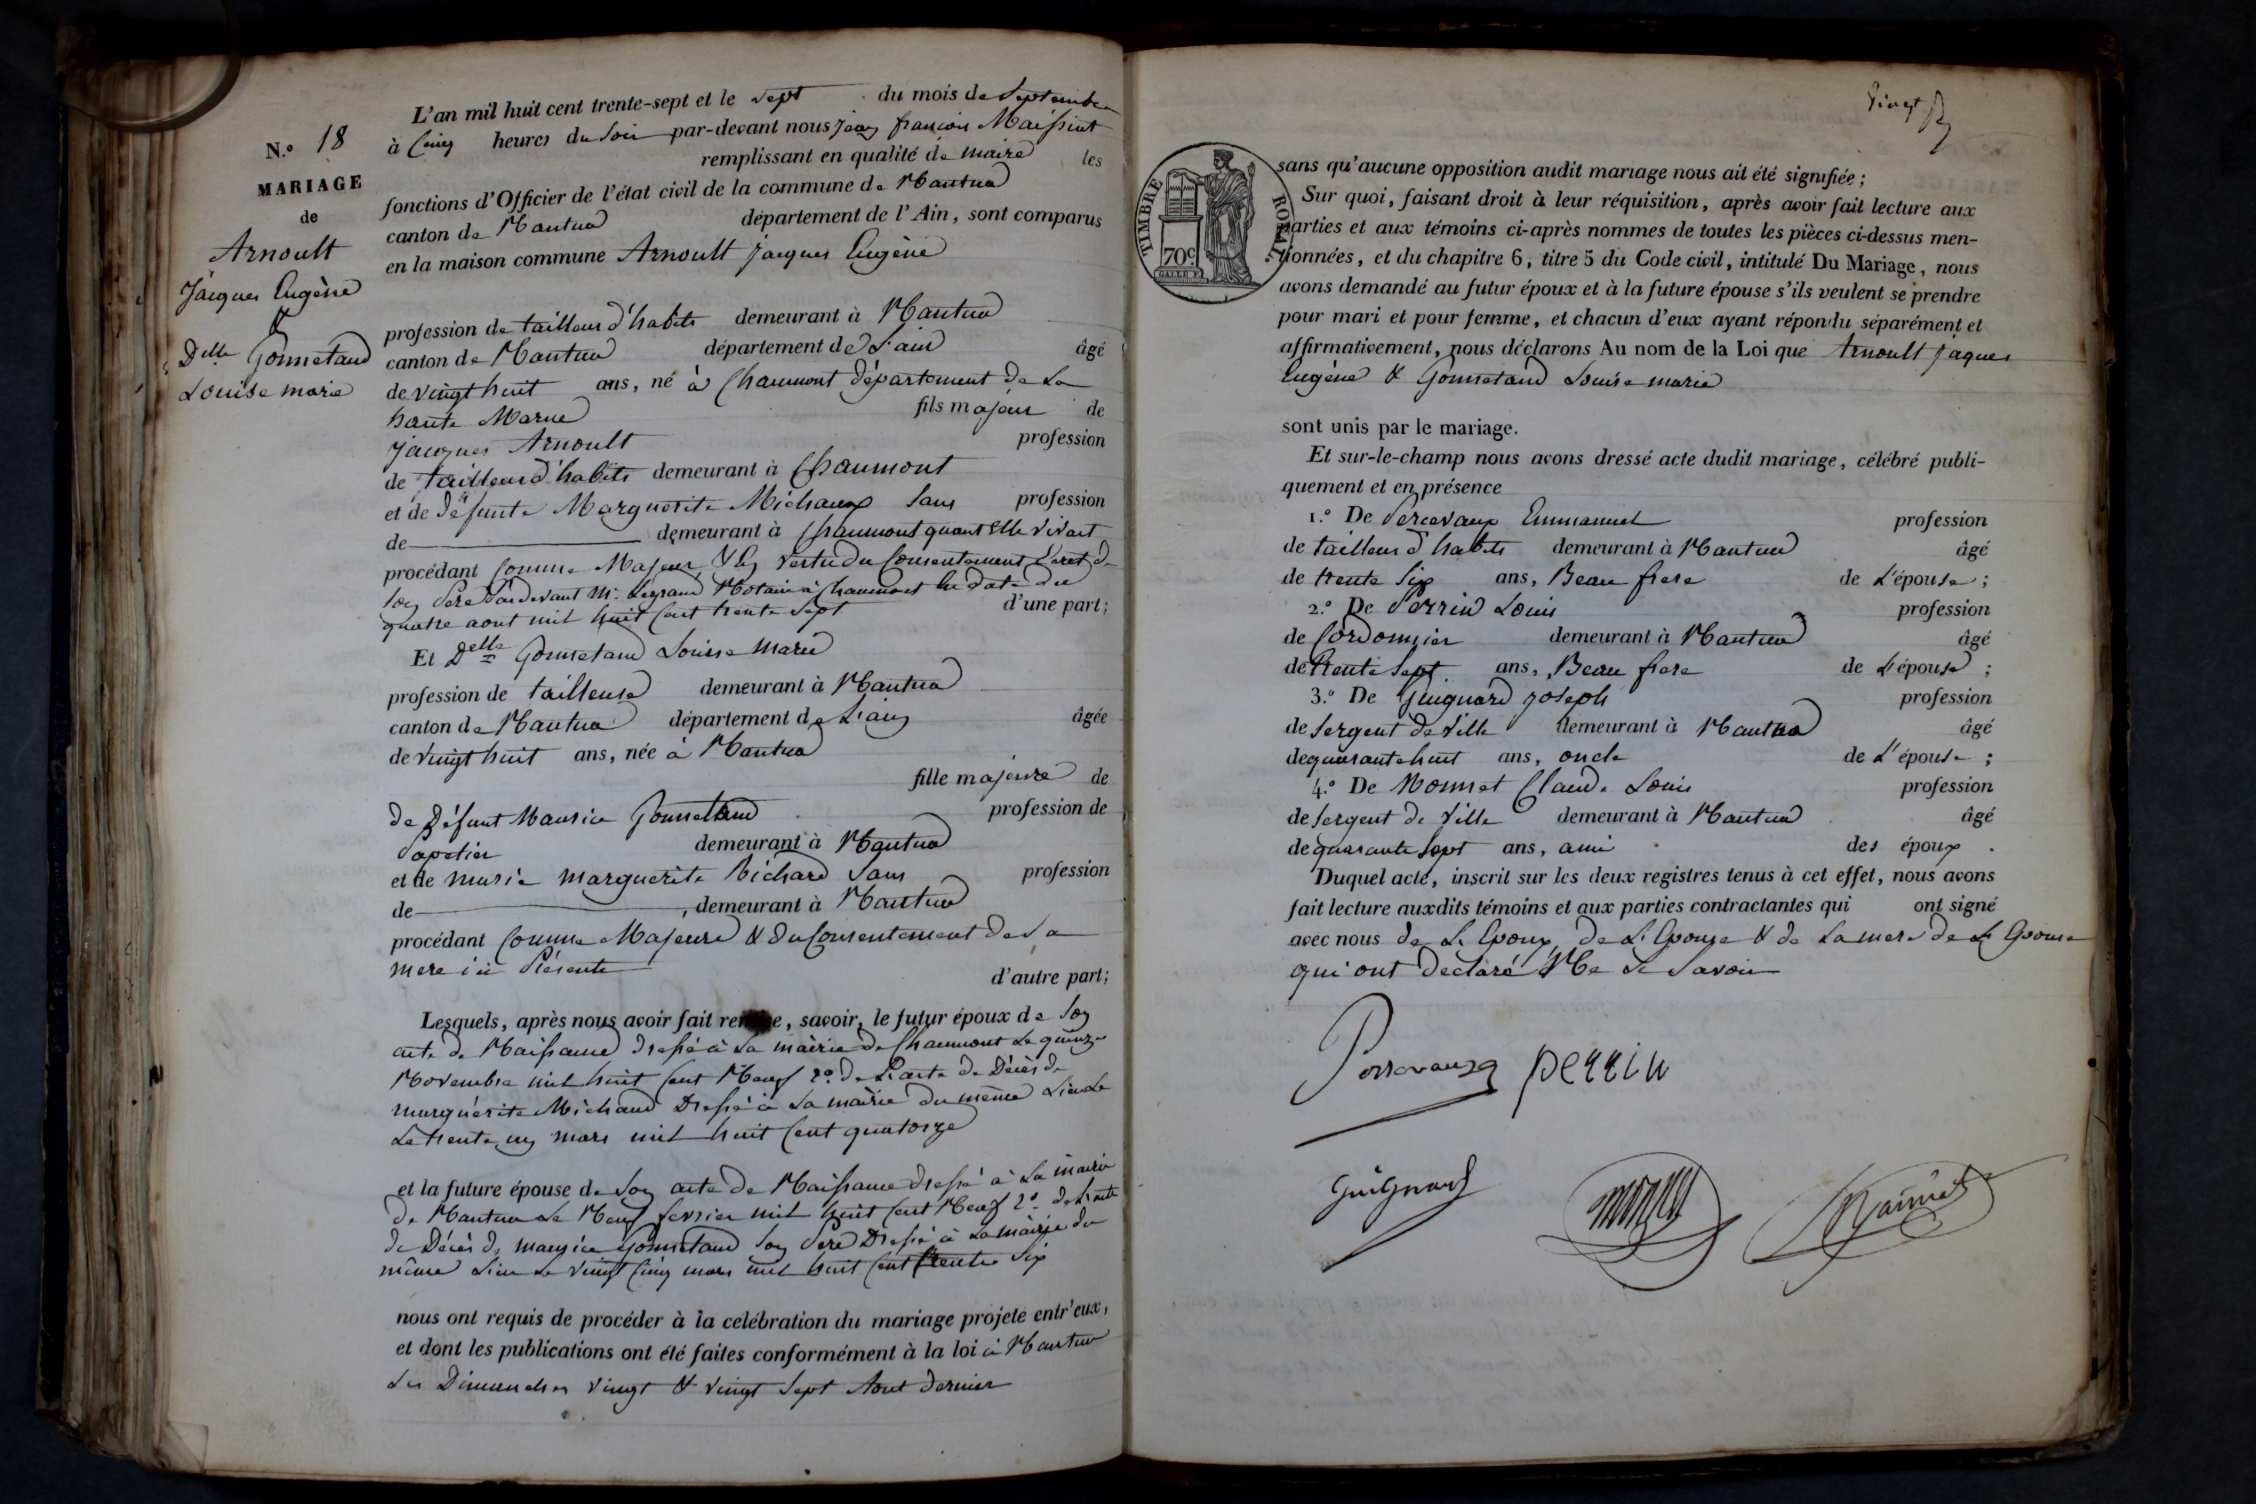 N.o 18
MARIAGE
de
Arnoult
Jacques Eugène
&
Delle Gonnetand
Louise marie
L'an mil huit cent trente-sept et le sept du mois de Septembre
à Cinq heures du Soir par-devant nous jean françois Maissiat
remplissant en qualité de maire les
fonctions d'Officier de l'état civil de la commune de Nantua
canton de Nantua département de l'Ain, sont comparus
en la maison commune Arnoult jacques Eugène
profession de tailleur d'habits demeurant à Nantua
canton de Nantua département de L'ain âgé
de vingt huit ans, né à Chaumont département de La
haute Marne fils majeur de
jacques Arnoult profession
de tailleur d'habits demeurant à Chaumont
et de défunte Marguerite Michaux Sans profession
de demeurant à Chaumont quant Elle vivait
procédant Comme Majeur & En vertu du Consentement de
Son Père Pardevant Mr. Legrand Notaire à Chaumont En date du
quatre aout mil huit Cent trente Sept d'une part;
Et Delle Gonnetand Louise Marie
profession de tailleuse demeurant à Nantua
canton de Nantua département de L'ain âgée
de vingt huit ans, née à Nantua
fille majeure de
de Défunt Maurice Gonnettand profession de
Papetier demeurant à Nantua
et de marie marguerite Richard Sans profession
de , demeurant à Nantua
procédant Comme Majeure & du Consentement de Sa
mere ici Présente d'autre part;
Lesquels, après nous avoir fait remise, savoir, le futur époux de Son
acte de Naissance dressé à La mairie de Chaumont Le quinze
Novembre mil huit Cent Neuf 2.o de L'acte de Décès de
marguérite Michaud Dressé à La mairie du même Lieu Le
Le trente un mars mil huit Cent quatorze
et la future épouse de Son acte de Naissance dressé à La mairie
de Nantua Le Neuf fevrier mil huit Cent Neuf 2.o de L'acte
de Décès de maurice Gonnetand Son Père Dressé à La mairie du
même Lieu Le vingt Cinq mars mil huit Cent trente Six
nous ont requis de procéder à la célébration du mariage projeté entr'eux,
et dont les publications ont été faites conformément à la loi à Nantua
Les Dimanches vingt & vingt Sept Aout dernier
Vingt
TIMBRE ROYAL.
70c
sans qu'aucune opposition audit mariage nous ait été signifiée;
Sur quoi, faisant droit à leur réquisition, après avoir fait lecture aux
parties et aux témoins ci-après nommes de toutes les pièces ci-dessus men-
tionnées, et du chapitre 6, titre 5 du Code civil, intitulé Du Mariage, nous
avons demandé au futur époux et à la future épouse s'ils veulent se prendre
pour mari et pour femme, et chacun d'eux ayant répondu séparément et
affirmativement, nous déclarons Au nom de la Loi que Arnoult jaques
Eugène & Gonnetand Louise marie
sont unis par le mariage.
Et sur-le-champ nous avons dressé acte dudit mariage, célébré publi-
quement et en présence
1.o De Percevaux Emmanuel profession
de tailleur d'habits demeurant à Nantua âgé
de trente Six ans, Beau frere de L'épouse;
2.o De Perrin Louis profession
de Cordonnier demeurant à Nantua âgé
de trente Sept ans, Beau frere de L'épouse;
3.o De Guignard joseph profession
de Sergent de ville demeurant à Nantua âgé
de quarante huit ans, oncle de L'épouse;
4.o De Monnet Claude Louis profession
de Sergent de ville demeurant à Nantua âgé
de quarante Sept ans, ami des époux.
Duquel acte, inscrit sur les deux registres tenus à cet effet, nous avons
fait lecture auxdits témoins et aux parties contractantes qui ont signé
avec nous de L'Epoux, de L'Epouse & de La mere de L'Epouse
qui ont déclaré Ne Le Savoir
Perrevaux perrin
Guignard